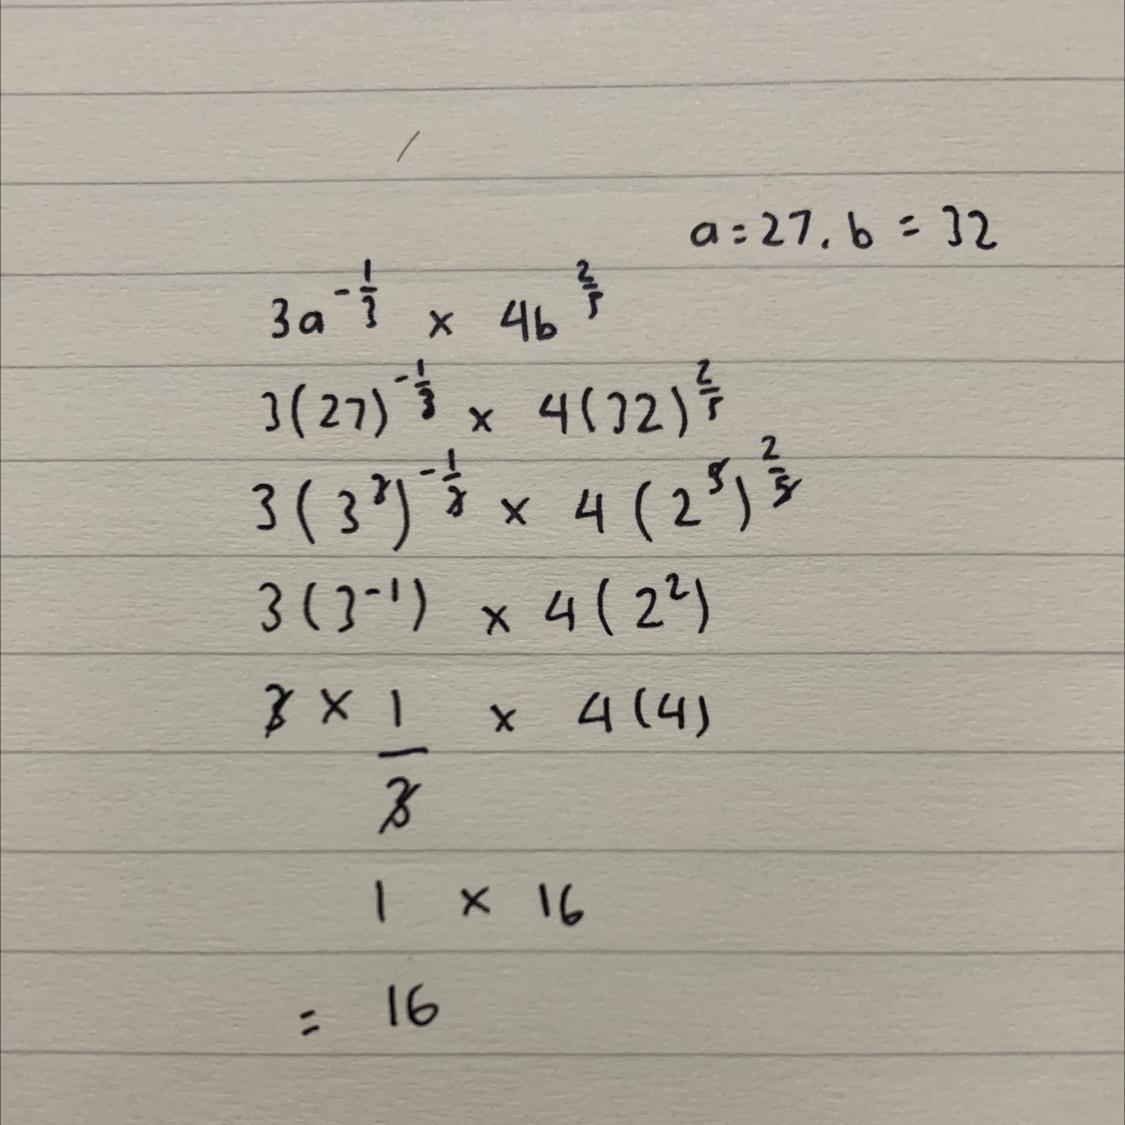 a = 27. b = 32
3a^{-\frac{1}{3}} × 4b^{\frac{2}{5}}
3(27)^{-\frac{1}{3}} × 4(32)^{\frac{2}{5}}
3(3^3)^{-\frac{1}{3}} × 4(2^5)^{\frac{2}{5}}
3(3^{-1}) × 4(2^2)
3 × \frac{1}{3} × 4(4)
1 × 16
= 16